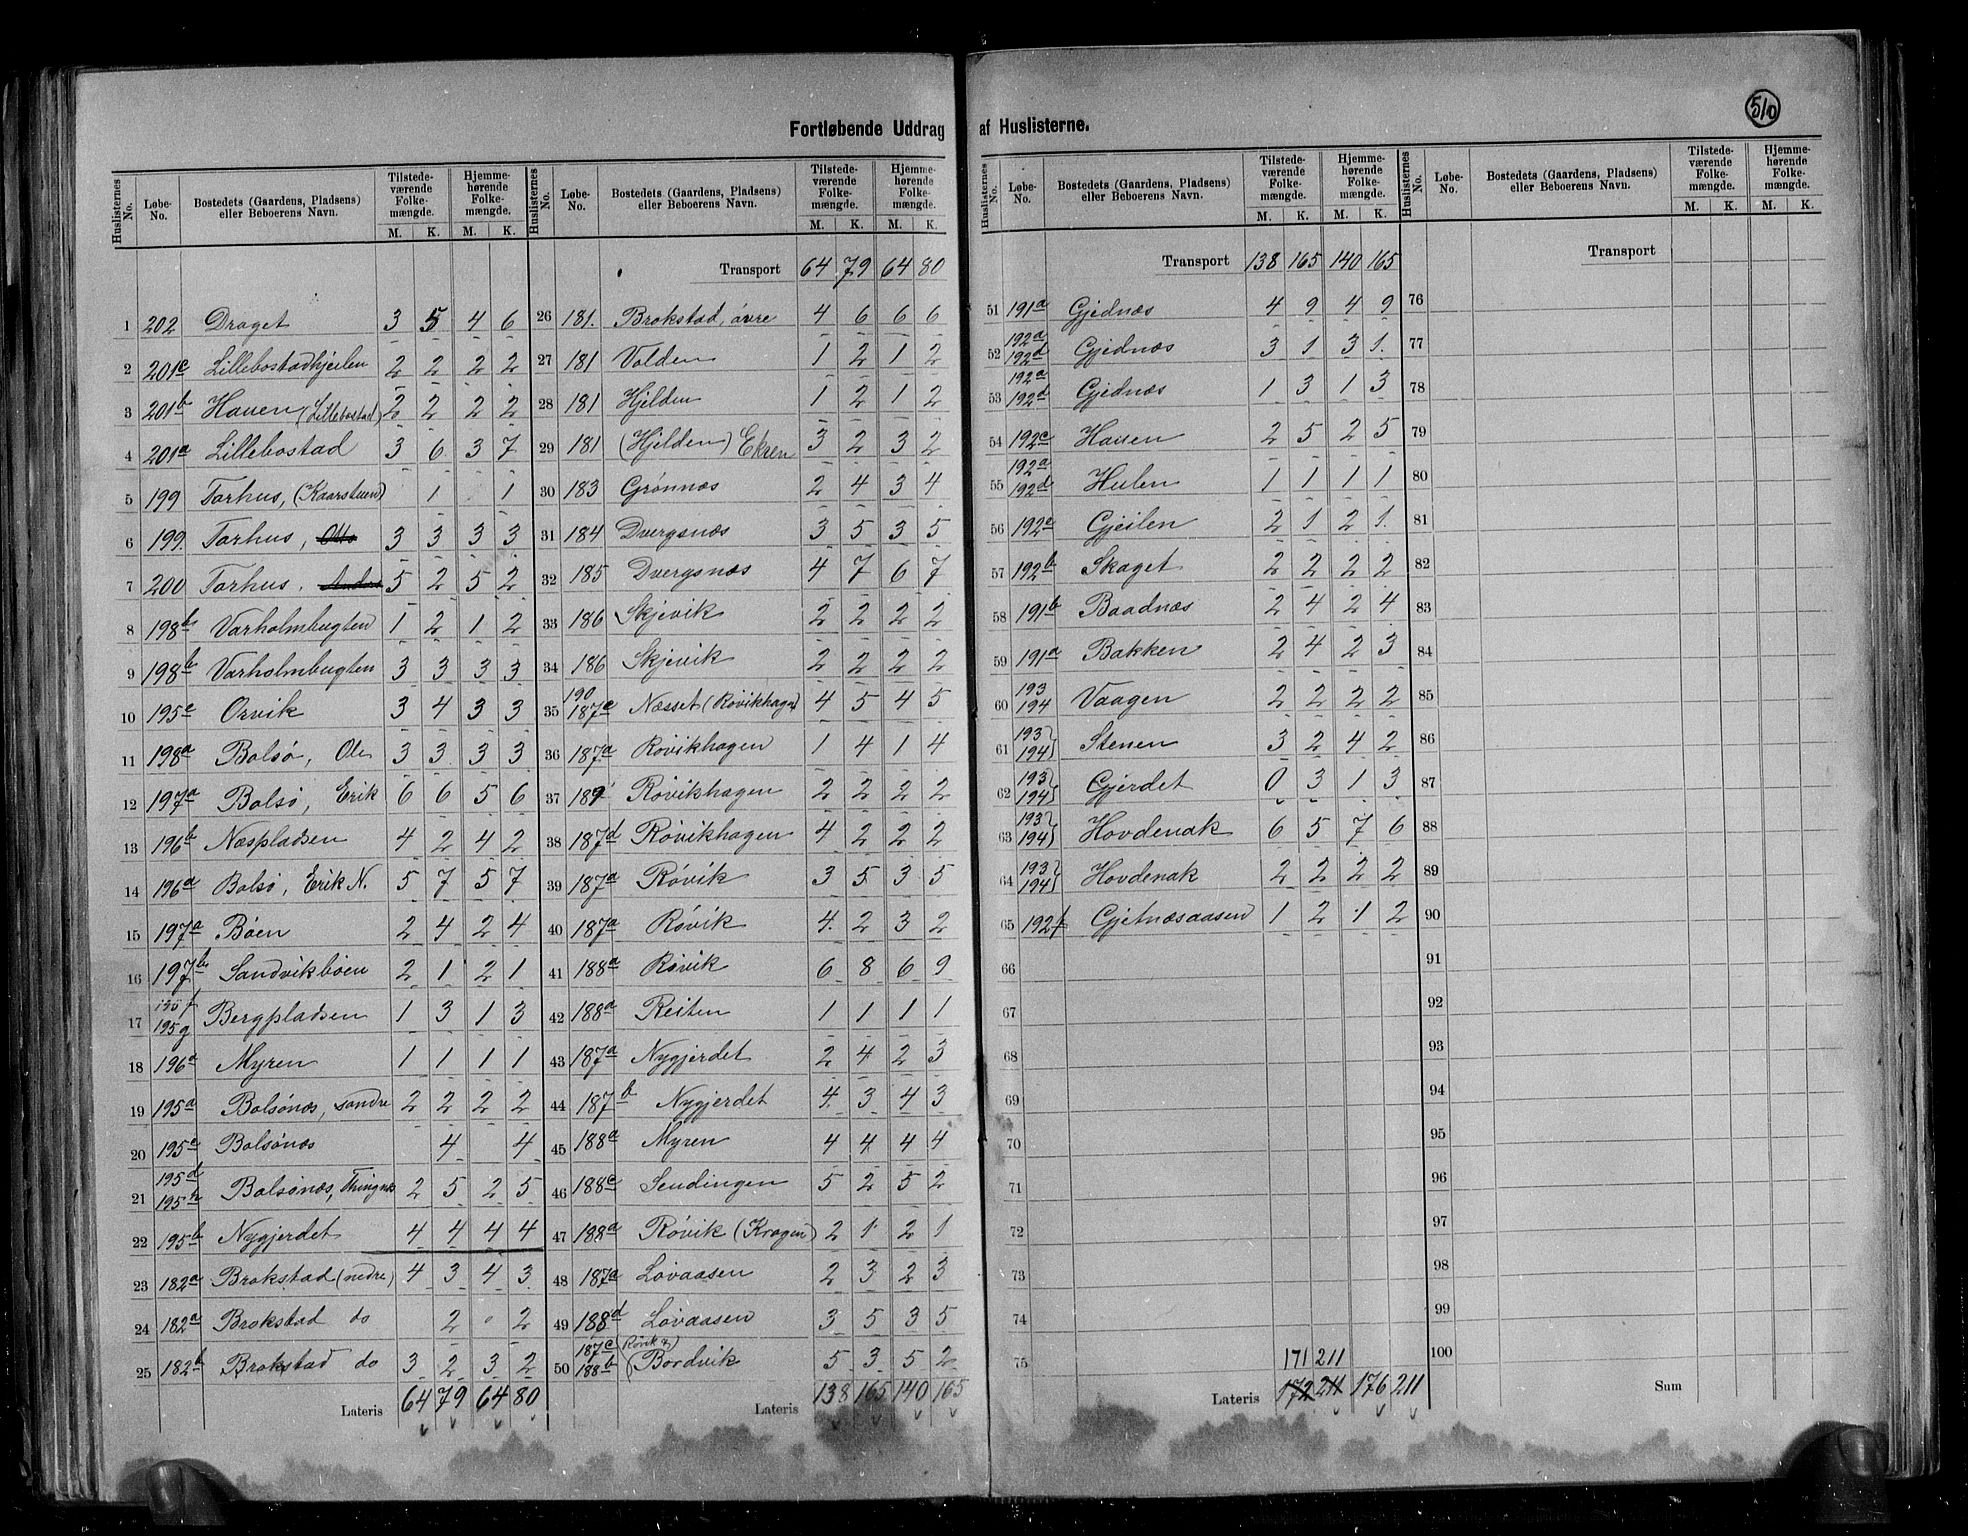 Fortløbende Uddrag af Huslisterne.
510
Huslisternes No. | Løbe-No. | Bostedets (Gaardens, Pladsens) eller Beboerens Navn. | Tilstedeværende Folkemængde. M. K. | Hjemmehørende Folkemængde. M. K.
1 202 Draget 3 5 4 6
2 201c Lillebostadhjeilen 2 2 2 2
3 201b Haven (Lillebostad) 2 2 2 2
4 201a Lillebostad 3 6 3 7
5 199 Torhus, (Kaarstuen) 1 1
6 199 Torhus, Otto 3 3 3 3
7 200 Torhus, 5 2 5 2
8 198b Varholmbugten 1 2 1 2
9 198b Varholmbugten 3 3 3 3
10 195e Orvik 3 4 3 3
11 198a Bolsø, Ole 3 3 3 3
12 197a Bolsø, Erik 6 6 5 6
13 196b Næspladsen 4 2 4 2
14 196a Bolsø, Erik N. 5 7 5 7
15 197a Bøen 2 4 2 4
16 197b Sandvikbøen 2 1 2 1
17 195f 195g Bergpladsen 1 3 1 3
18 196a Myren 1 1 1 1
19 195a Bolsønæs, søndre 2 2 2 2
20 195c Bolsønæs 4 4
21 195d 195h Bolsønæs, Thingnæs 2 5 2 5
22 195b Nygjerdet 4 4 4 4
23 182a Brokstad (nedre) 4 3 4 3
24 182a Brokstad do 2 " 2
25 182b Brokstad do 3 2 3 2
Lateris 64 79 64 80
Huslisternes No. | Løbe-No. | Bostedets (Gaardens, Pladsens) eller Beboerens Navn. | Tilstedeværende Folkemængde. M. K. | Hjemmehørende Folkemængde. M. K.
Transport 64 79 64 80
26 181. Brokstad, øvre 4 6 6 6
27 181 Volden 1 2 1 2
28 181 Hjelden 1 2 1 2
29 181 (Hjelden) Ekren 3 2 3 2
30 183 Grønnæs 2 4 3 4
31 184 Dvergsnæs 3 5 3 5
32 185 Dvergsnæs 4 7 6 7
33 186 Skjevik 2 2 2 2
34 186 Skjevik 2 2 2 2
35 190 187e Næsset (Røvikhagen) 4 5 4 5
36 187a Røvikhagen 1 4 1 4
37 189 Røvikhagen 2 2 2 2
38 187d Røvikhagen 4 2 2 2
39 187a Røvik 3 5 3 5
40 187a Røvik 4 2 3 2
41 188a Røvik 6 8 6 9
42 188a Reiten 1 1 1 1
43 187a Nygjerdet 2 4 2 3
44 187b Nygjerdet 4 3 4 3
45 188a Myren 4 4 4 4
46 188c Sendingen 5 2 5 2
47 188a Røvik (Kragen) 2 1 2 1
48 187a Løvaasen 2 3 2 3
49 188d Løvaasen 3 5 3 5
50 187c 188b (Røvik &) Bordvik 5 3 5 2
Lateris 138 165 140 165
Huslisternes No. | Løbe-No. | Bostedets (Gaardens, Pladsens) eller Beboerens Navn. | Tilstedeværende Folkemængde. M. K. | Hjemmehørende Folkemængde. M. K.
Transport 138 165 140 165
51 191a Gjednæs 4 9 4 9
52 192a 192d Gjednæs 3 1 3 1
53 192a 192d Gjednæs 1 3 1 3
54 192c Haven 2 5 2 5
55 192a 192d Hulen 1 1 1 1
56 192e Gjeilen 2 1 2 1
57 192b Skaget 2 2 2 2
58 191b Baadnæs 2 4 2 4
59 191a Bakken 2 4 2 3
60 193 194 Vaagen 2 2 2 2
61 193 194 Stenen 3 2 4 2
62 193 194 Gjerdet 0 3 1 3
63 193 194 Hovdenak 6 5 7 6
64 193 194 Hovdenak 2 2 2 2
65 192f Gjetnæsaasen 1 2 1 2
66
67
68
69
70
71
72
73
74
75 171 211
Lateris 172 211 176 211
Huslisternes No. | Løbe-No. | Bostedets (Gaardens, Pladsens) eller Beboerens Navn. | Tilstedeværende Folkemængde. M. K. | Hjemmehørende Folkemængde. M. K.
Transport
76
77
78
79
80
81
82
83
84
85
86
87
88
89
90
91
92
93
94
95
96
97
98
99
100
Sum